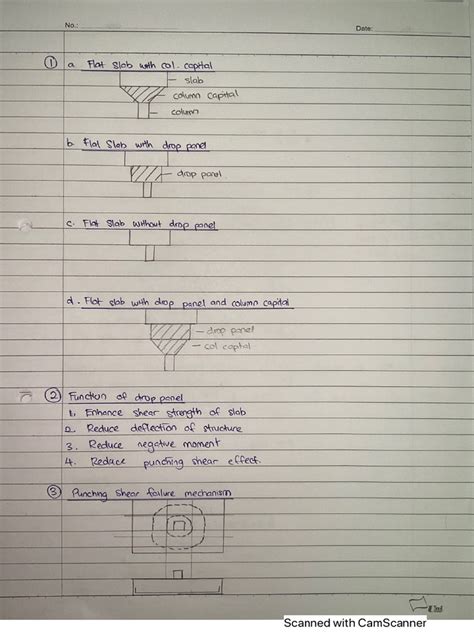 No.:
Date:
① a Flat Slab with col. capital
slab
column capital
column
b Flat Slab with drop panel
drop panel
c. Flat Slab without drop panel
d. Flat slab with drop panel and column capital
drop panel
col capital
② Function of drop panel
1. Enhance shear strength of slab
2. Reduce deflection of structure
3. Reduce negative moment
4. Reduce punching shear effect.
③ Punching shear failure mechanism
Scanned with CamScanner